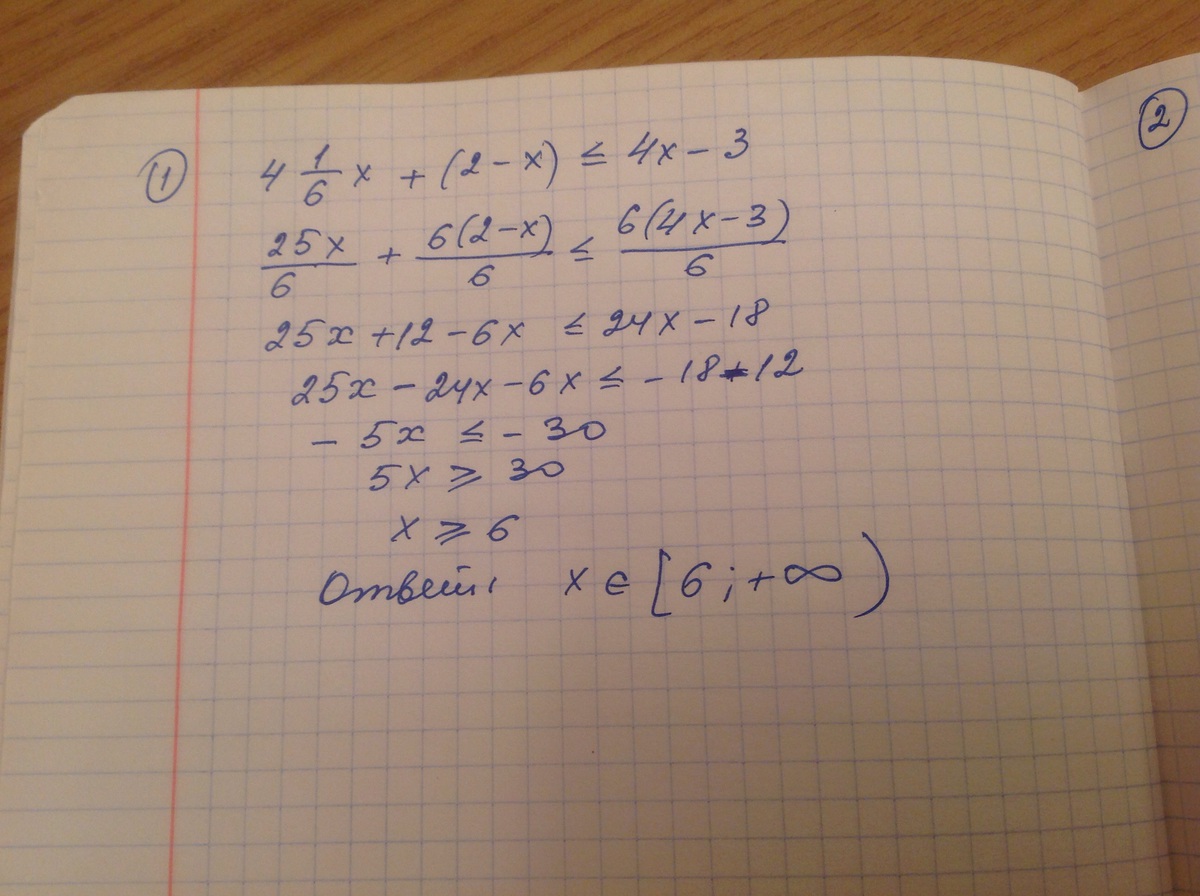 ① 4 1/6 x + (2 - x) ≤ 4x - 3
25x/6 + 6(2-x)/6 ≤ 6(4x-3)/6
25x + 12 - 6x ≤ 24x - 18
25x - 24x - 6x ≤ - 18 - 12
- 5x ≤ - 30
5x ≥ 30
x ≥ 6
Ответ: x ∈ [6; +∞)
②